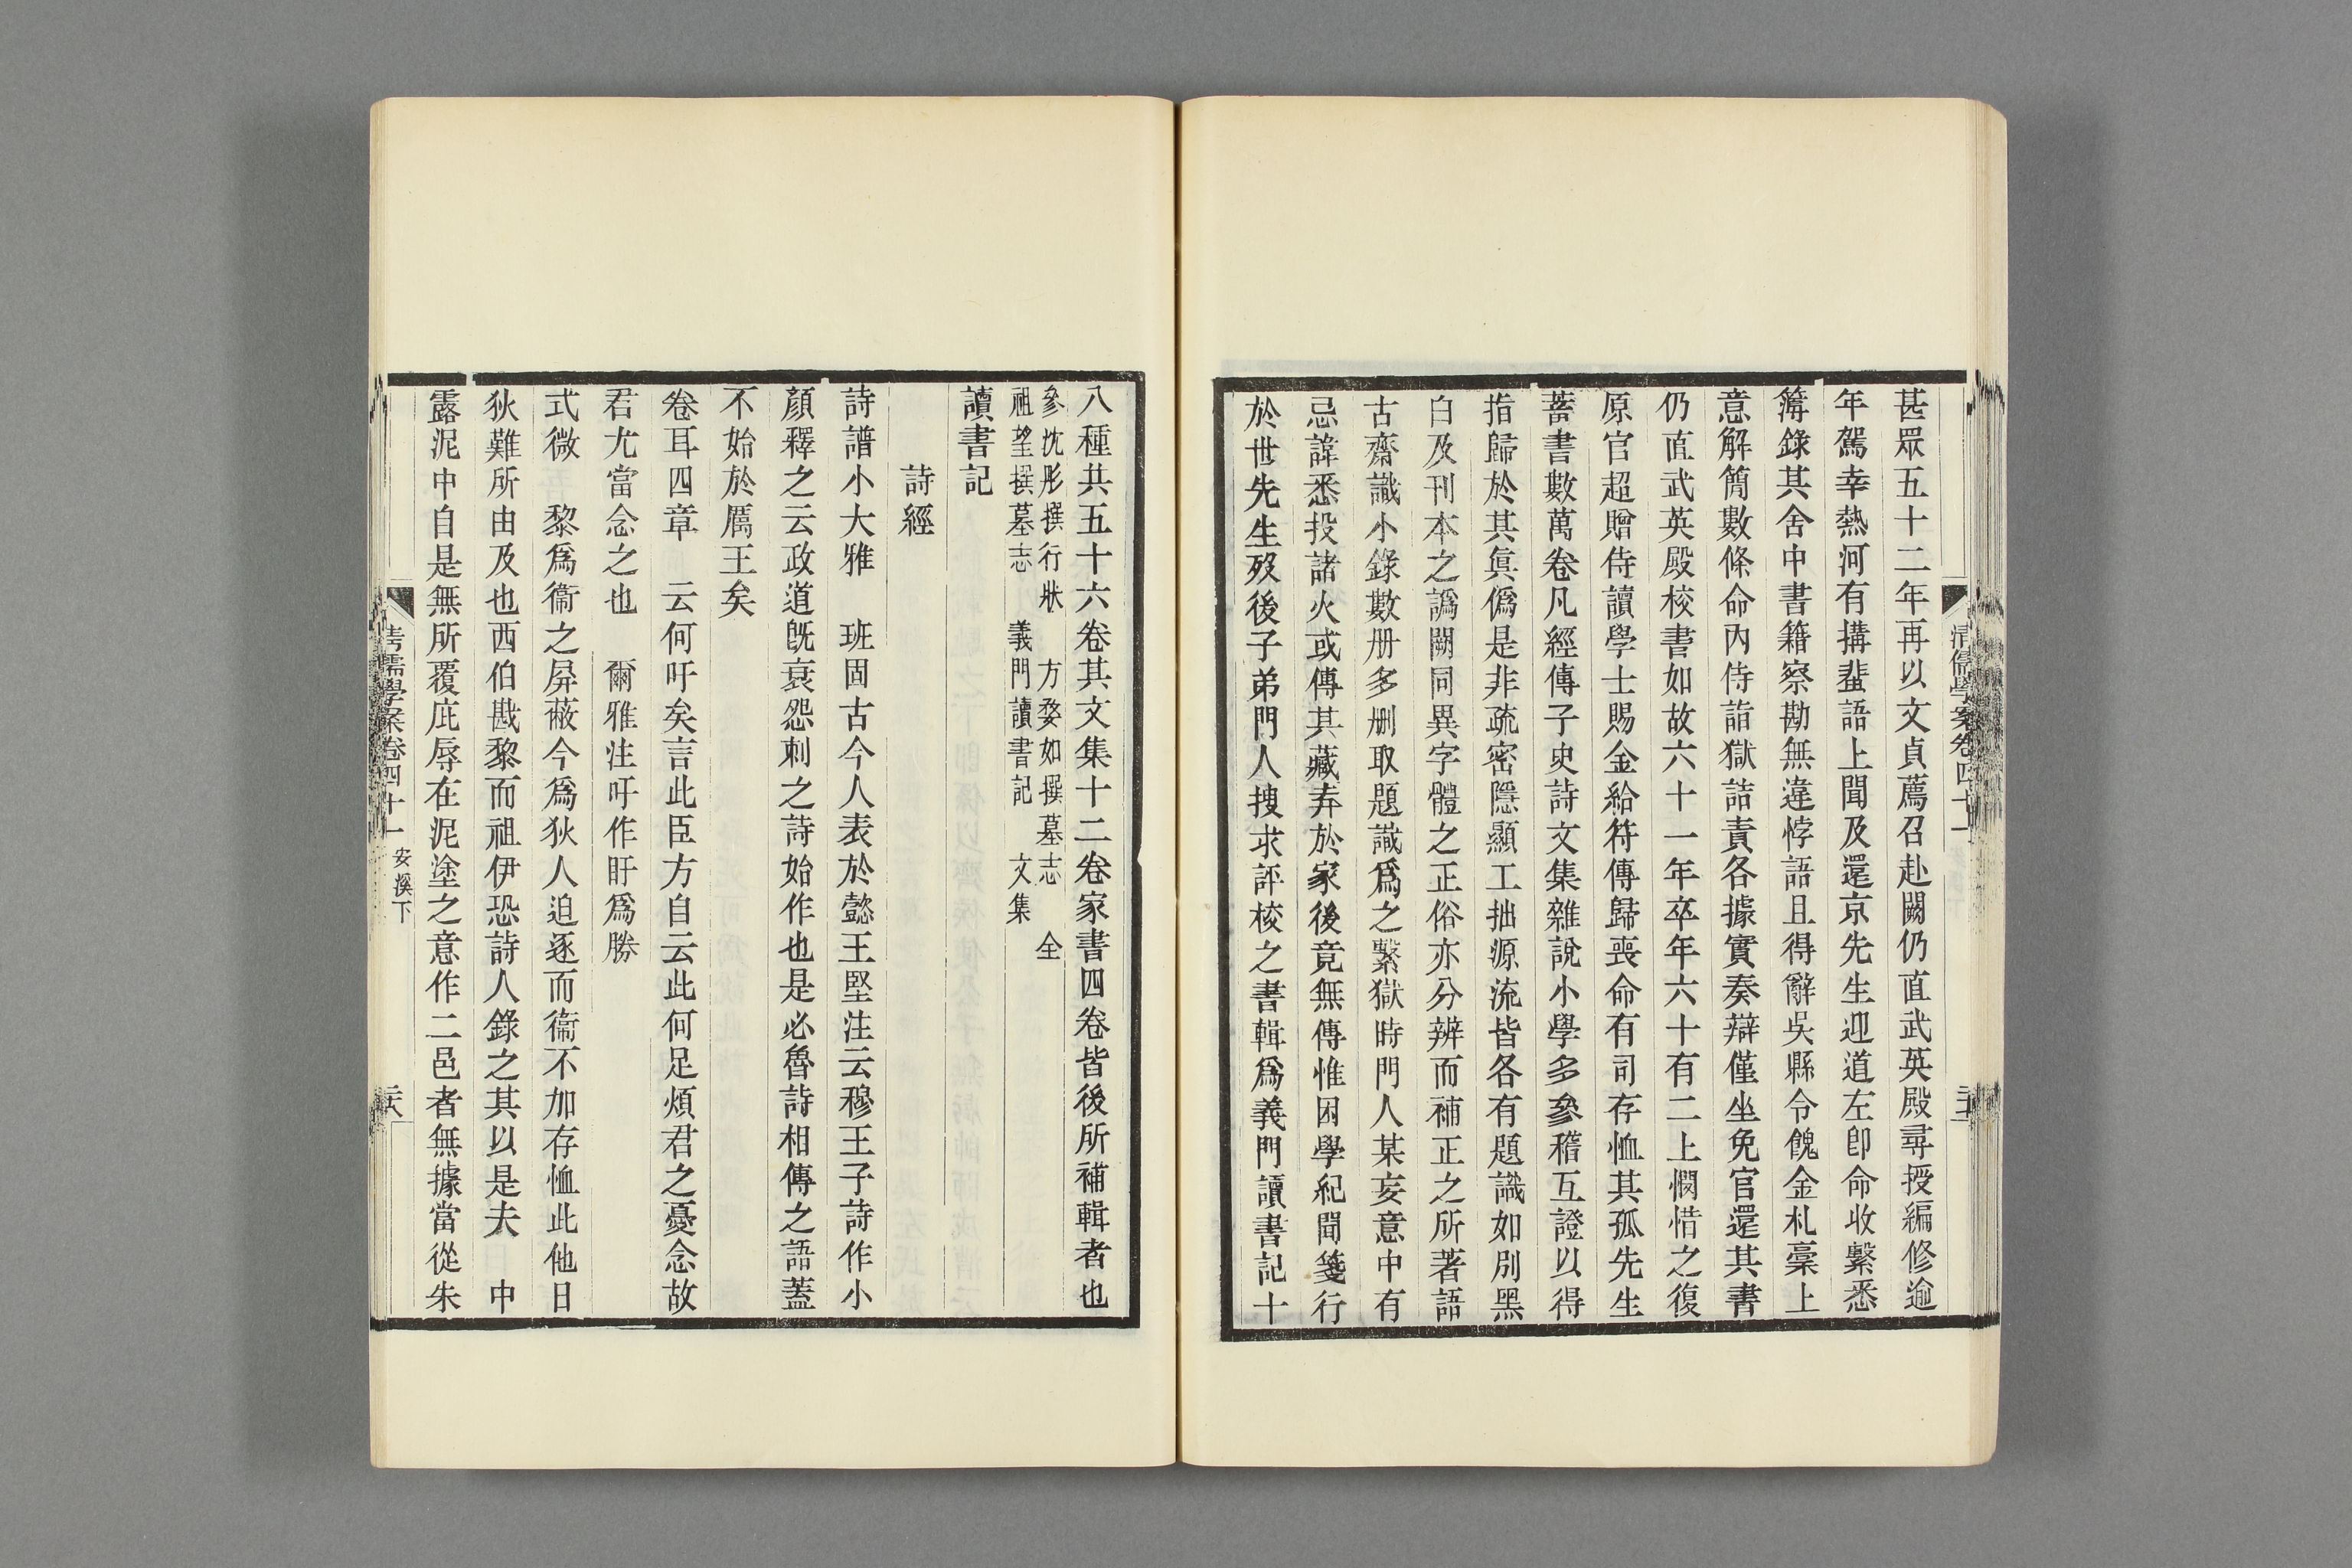 甚眾五十二年再以文貞薦召赴闕仍直武英殿尋授編修逾
年駕幸熱河有搆蜚語上聞及還京先生迎道左卽命收繫悉
簿錄其舍中書籍察勘無違悖語且得辭吳縣令餽金札稾上
意解簡數條命內侍詣獄詰責各據實奏辯僅坐免官還其書
仍直武英殿校書如故六十一年卒年六十有二上憫惜之復
原官超贈侍讀學士賜金給符傳歸喪命有司存恤其孤先生
蓄書數萬卷凡經傳子史詩文集雜說小學多參稽互證以得
指歸於其眞僞是非疏密隱顯工拙源流皆各有題識如別黑
白及刊本之譌闕同異字體之正俗亦分辨而補正之所著語
古齋識小錄數册多刪取題識爲之繫獄時門人某妄意中有
忌諱悉投諸火或傳其藏弆於家後竟無傳惟困學紀聞箋行
於世先生歿後子弟門人搜求評校之書輯爲義門讀書記十
清儒學案卷四十一
八種共五十六卷其文集十二卷家書四卷皆後所補輯者也
參沈彤撰行狀　方婺如撰墓志　全
祖望撰墓志　義門讀書記　文集
讀書記
詩經
詩譜小大雅　班固古今人表於懿王堅注云穆王子詩作小
顏釋之云政道旣衰怨刺之詩始作也是必魯詩相傳之語蓋
不始於厲王矣
卷耳四章　云何吁矣言此臣方自云此何足煩君之憂念故
君尤當念之也　爾雅注吁作盱爲勝
式微　黎爲衞之屏蔽今爲狄人迫逐而衞不加存恤此他日
狄難所由及也西伯戡黎而祖伊恐詩人錄之其以是夫　中
露泥中自是無所覆庇辱在泥塗之意作二邑者無據當從朱
清儒學案卷四十一 安溪下